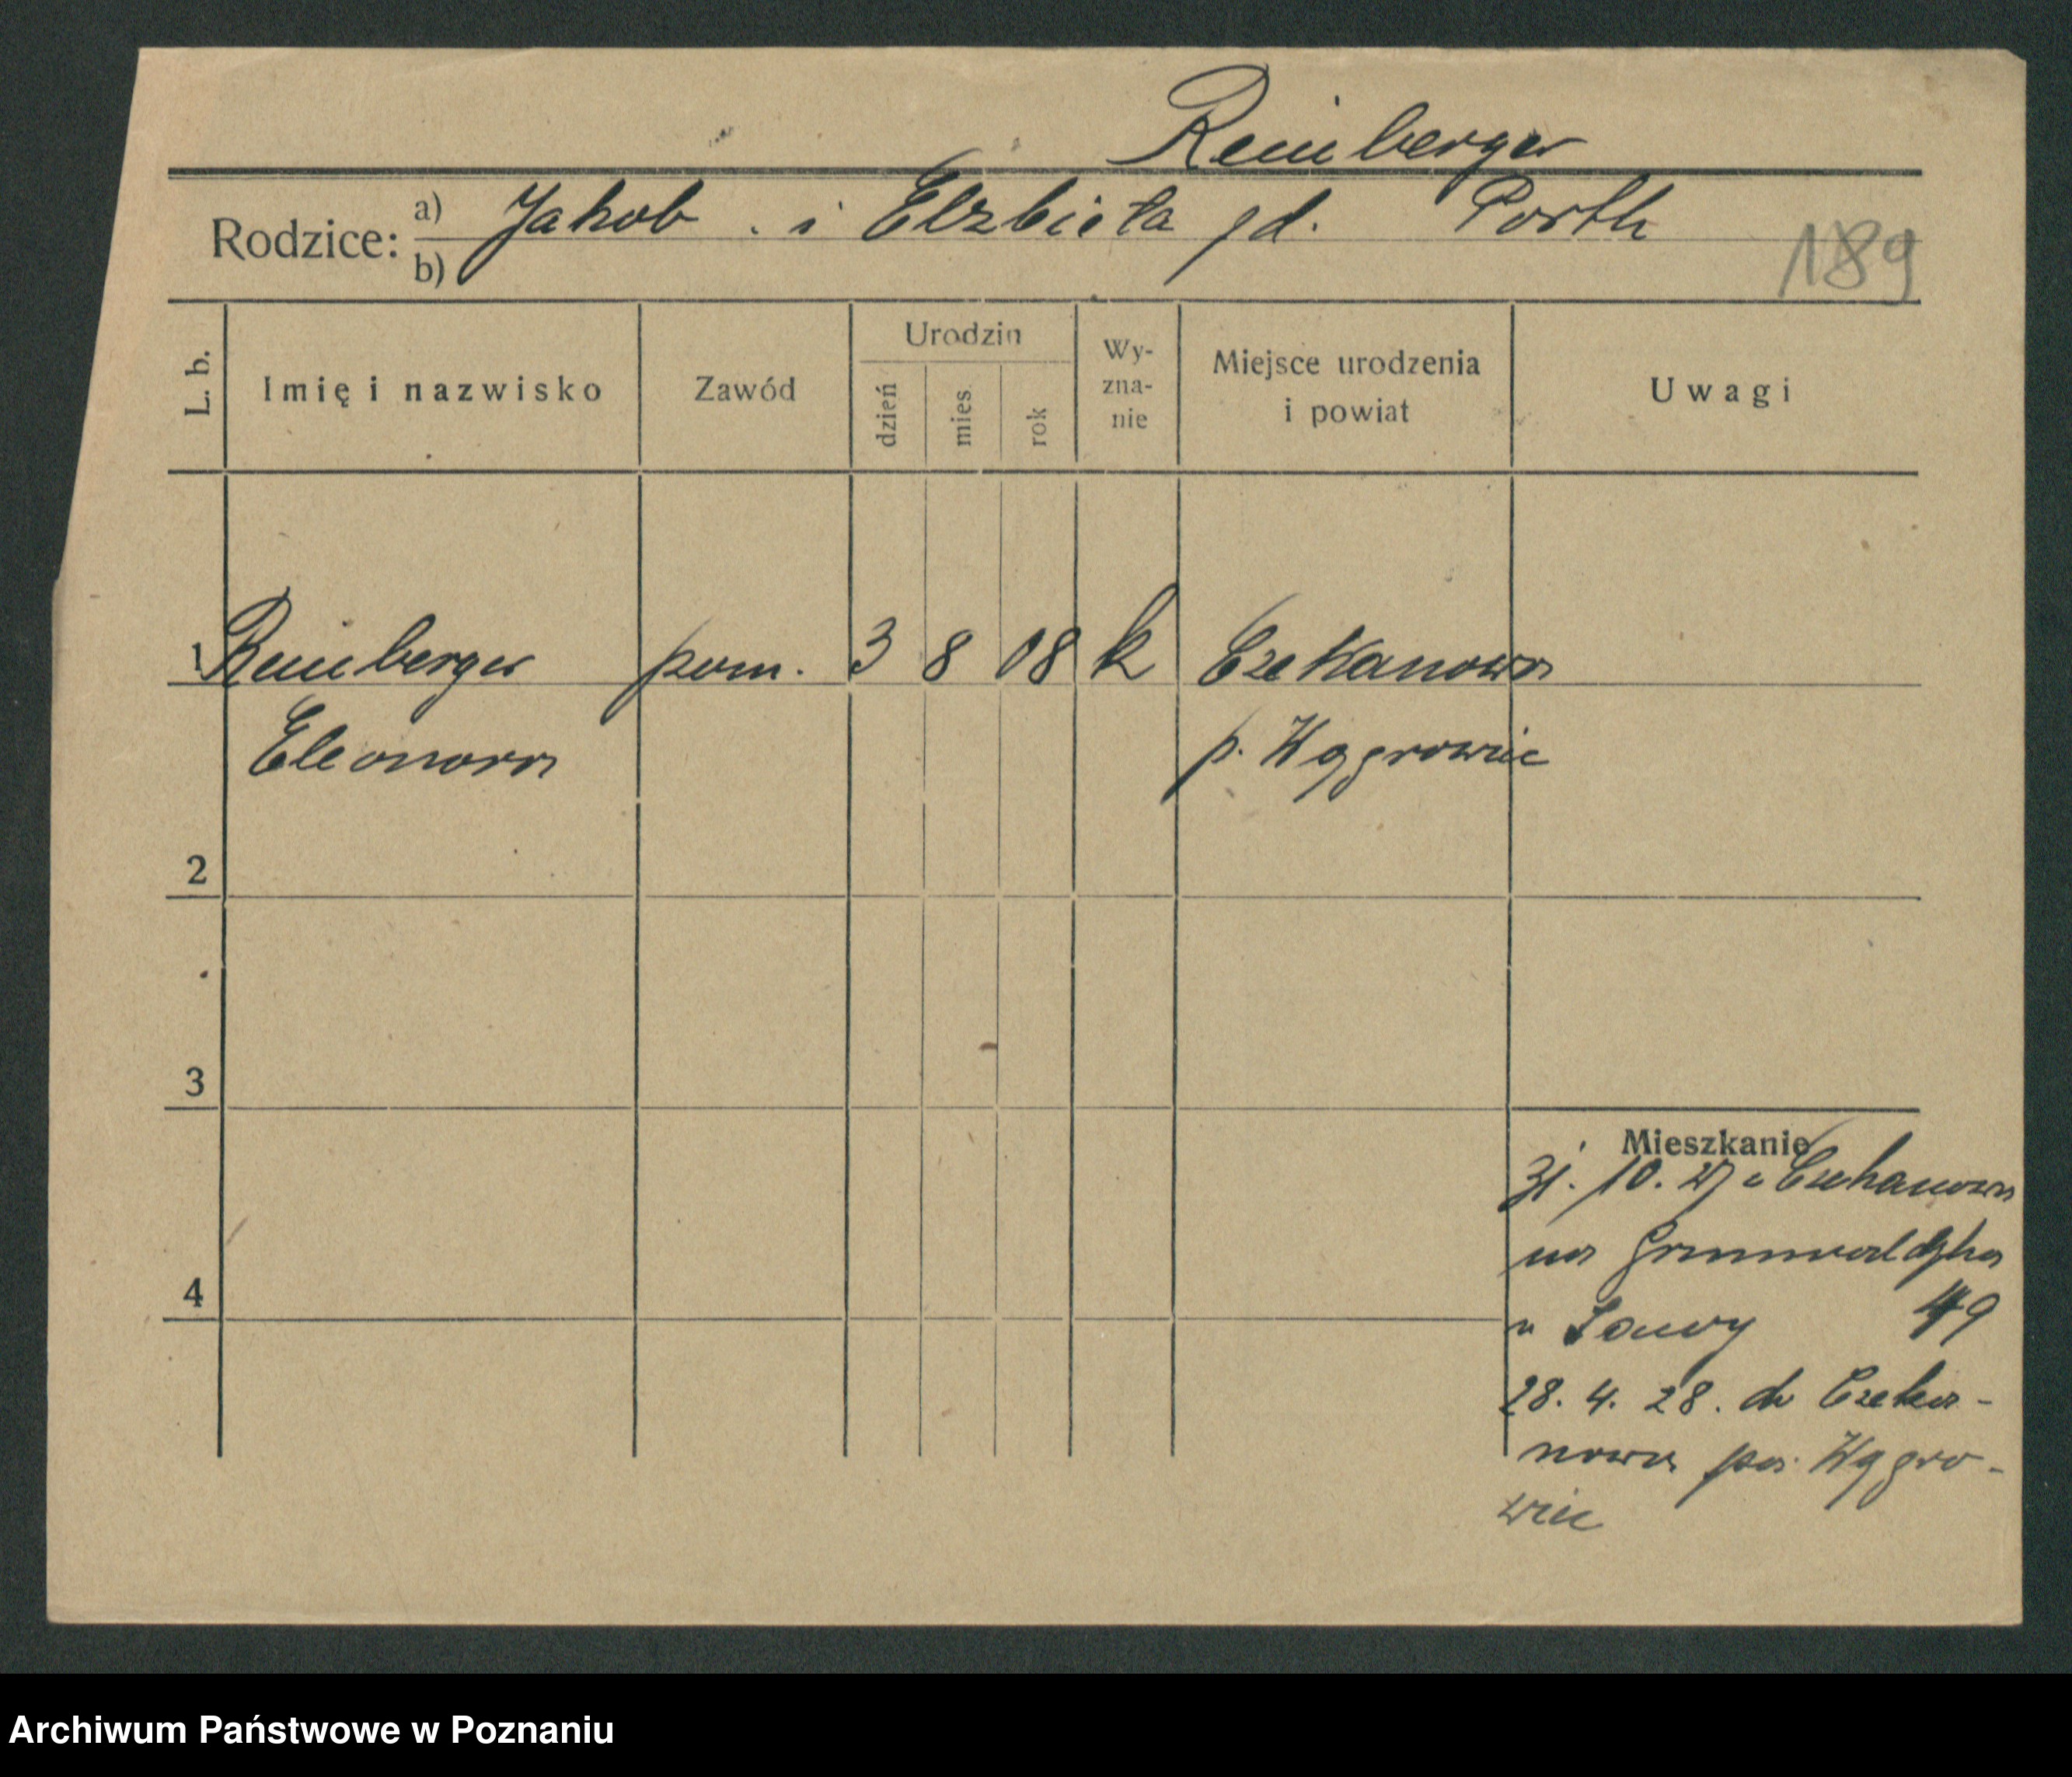 Reinberger
Rodzice: a) Jakob . i Elzbieta gd. Porth
b)
189
L. b. Imię i nazwisko Zawód Urodzin dzień mies. rok Wy-zna-nie Miejsce urodzenia i powiat Uwagi
1 Reinberger pom. 3 8 08 k Czekanowo
Eleonora p. Wągrowiec
2
3
4
Mieszkanie
31. 10. 27 z Czekanowa
na Grunwaldzka
u 49
28. 4. 28. do Czeka-
nowa po. Wągro-
wiec
Archiwum Państwowe w Poznaniu